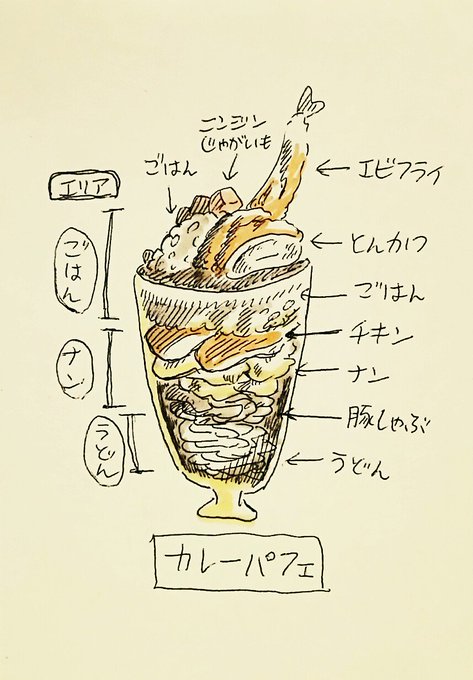 ニンジン
じゃがいも
ごはん
エビフライ
エリア
とんかつ
ごはん
ごはん
チキン
ナン
ナン
豚しゃぶ
うどん
うどん
カレーパフェ